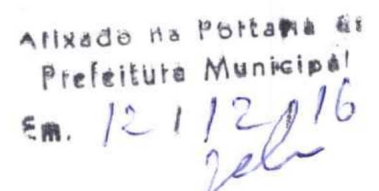 Afixado na Portaria da
Prefeitura Municipal
Em. 12 / 12 / 16